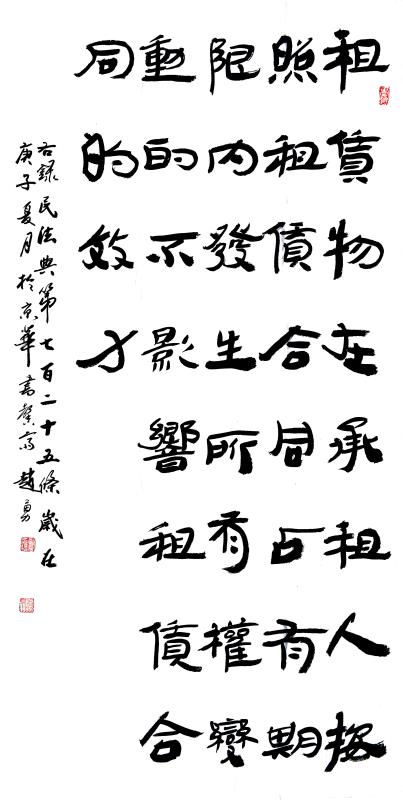 租賃物在承租人按
照租賃合同占有期
限內發生所有權變
動的不影響租賃合
同的效力
右錄民法典第七百二十五條歲在
庚子夏月於京華書馨齋趙勇